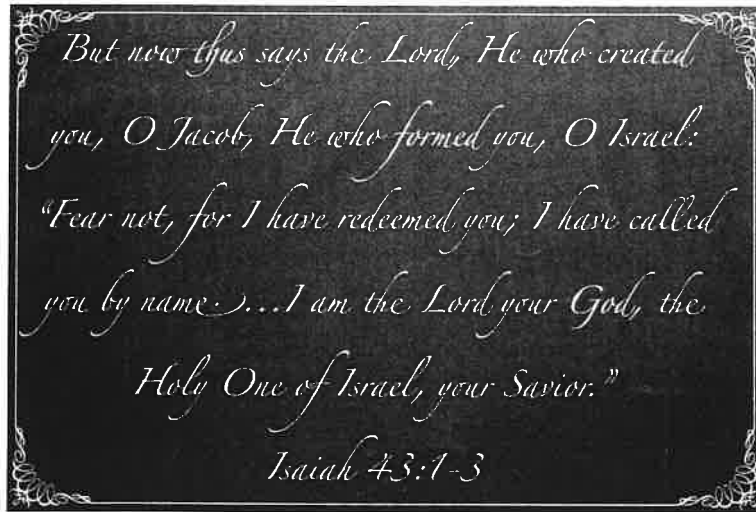 But now thus says the Lord, He who created
you, O Jacob, He who formed you, O Israel:
"Fear not, for I have redeemed you; I have called
you by name...I am the Lord your God, the
Holy One of Israel, your Savior."
Isaiah 43:1-3